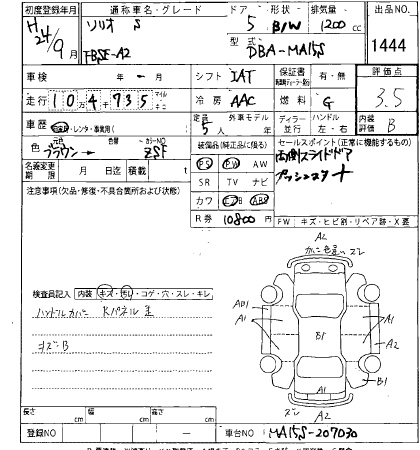 初度登録年月 通称車名・グレード ドア 形状 排気量 出品NO.
H24/9 ソリオ S 5 B/W 1200 cc
FBSE-A2 型式 DBA-MA15S 1444
車検 年 月 シフト IAT 保証書 有・無 評価点
走行 104735 マイル キロ 冷房 AAC 燃料 G 3.5
車歴 自家用・レンタ・事業用( ) 定員 5人 外車モデル 年 ディーラー 並行 ハンドル 左・右 内装評価 B
色 ブラウン 色替 カラーNO ZSF 装備品(純正品に限る) セールスポイント(正常に機能するもの)
PS PW AW 両側スライドドア
名義変更期限 月 日迄 積載 t SR TV ナビ プッシュスタート
注意事項(欠品・修復・不具合箇所および状態) カワ エアB ABS
R券 10800円 FW キズ・ヒビ割・リペア跡・X要
A2
検査員記入 内装 キズ・汚レ・コゲ・穴・スレ・キレ
ハンドルカバー Kパネル
ヨゴB
AD1 A1 B1 A1 A2
A1 A1
B1
A2
長さ cm 幅 cm 高さ cm
登録NO 車台NO MA15S-207030